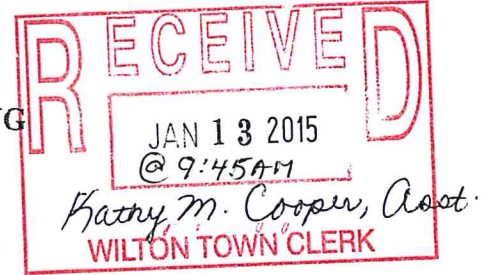 RECEIVED
G
JAN 13 2015
@ 9:45AM
Kathy M. Cooper, Asst.
WILTON TOWN CLERK